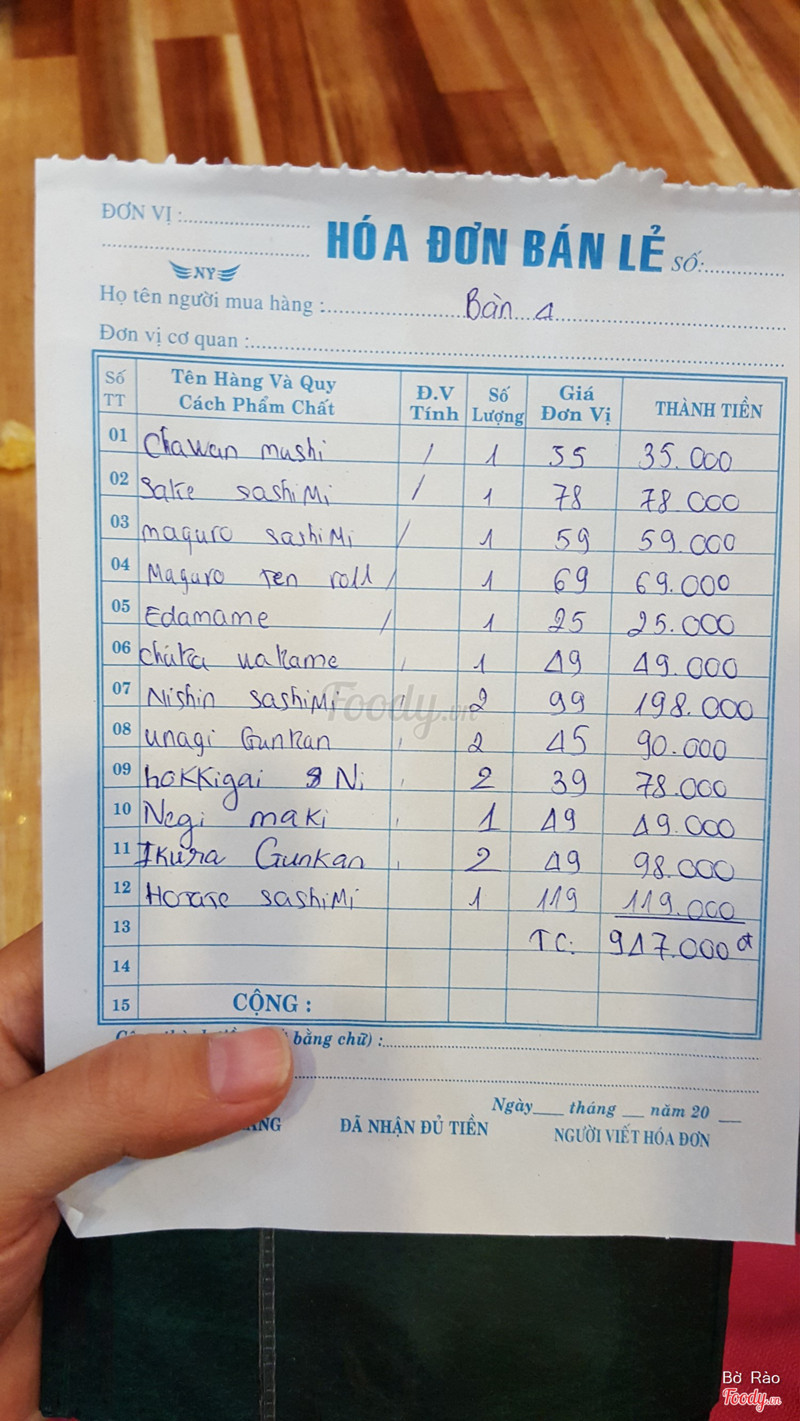 ĐƠN VỊ :
HÓA ĐƠN BÁN LẺ SỐ:
NY
Họ tên người mua hàng : Bàn 4
Đơn vị cơ quan :
Số TT Tên Hàng Và Quy Cách Phẩm Chất Đ.V Tính Số Lượng Giá Đơn Vị THÀNH TIỀN
01 Chawan mushi / 1 35 35.000
02 Sake sashimi / 1 78 78.000
03 maguro sashimi / 1 59 59.000
04 Maguro Ten roll / 1 69 69.000
05 Edamame / 1 25 25.000
06 chuka wakame 1 49 49.000
07 Nishin sashimi 2 99 198.000
08 unagi Gunkan 2 45 90.000
09 hokkigai Ni 2 39 78.000
10 Negi maki 1 49 49.000
11 Ikura Gunkan 2 49 98.000
12 sashimi 1 119 119.000
13 TC: 947.000đ
14
15 CỘNG :
bằng chữ) :
Ngày___ tháng ___ năm 20 ___
ĐÃ NHẬN ĐỦ TIỀN NGƯỜI VIẾT HÓA ĐƠN
Foody.vn
Bờ Rào
Foody.vn